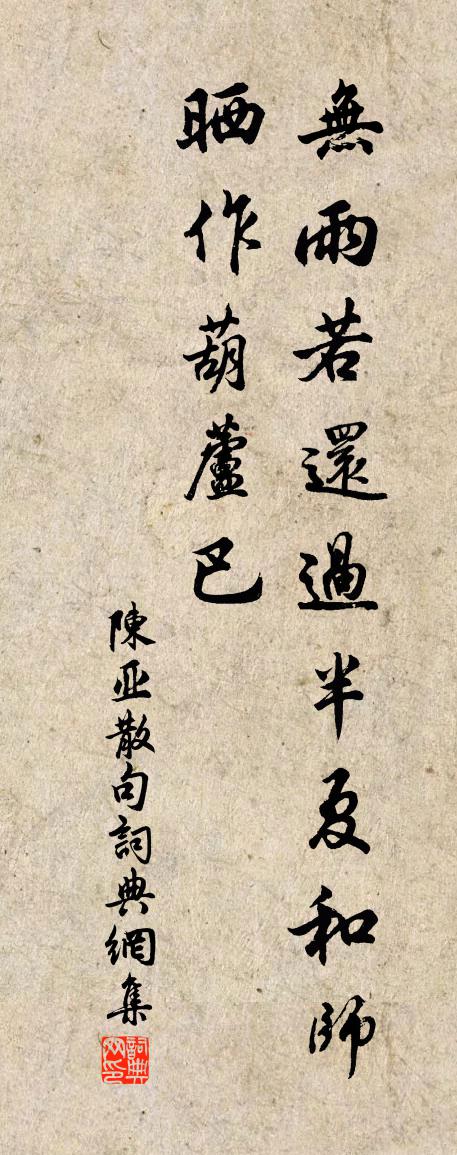 無雨若還過半夏和師
晒作葫蘆巴
陳亚散句詞典網集
詞典网印